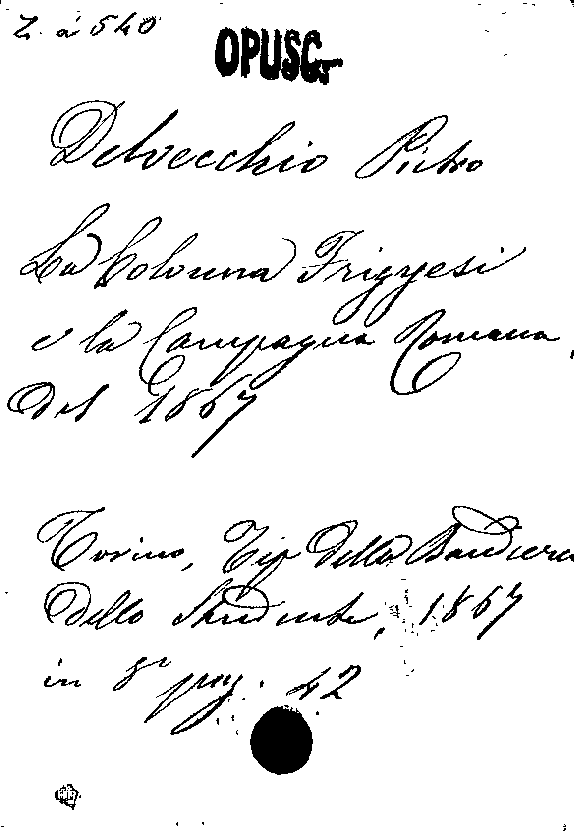 Z. á 540
OPUSC.
Delvecchio Pietro
La Colonna Frigyesi
e la Campagna Romana
del 1867
Torino, Tip della Bandiera
dello Studente, 1867
in 8° pag. 42